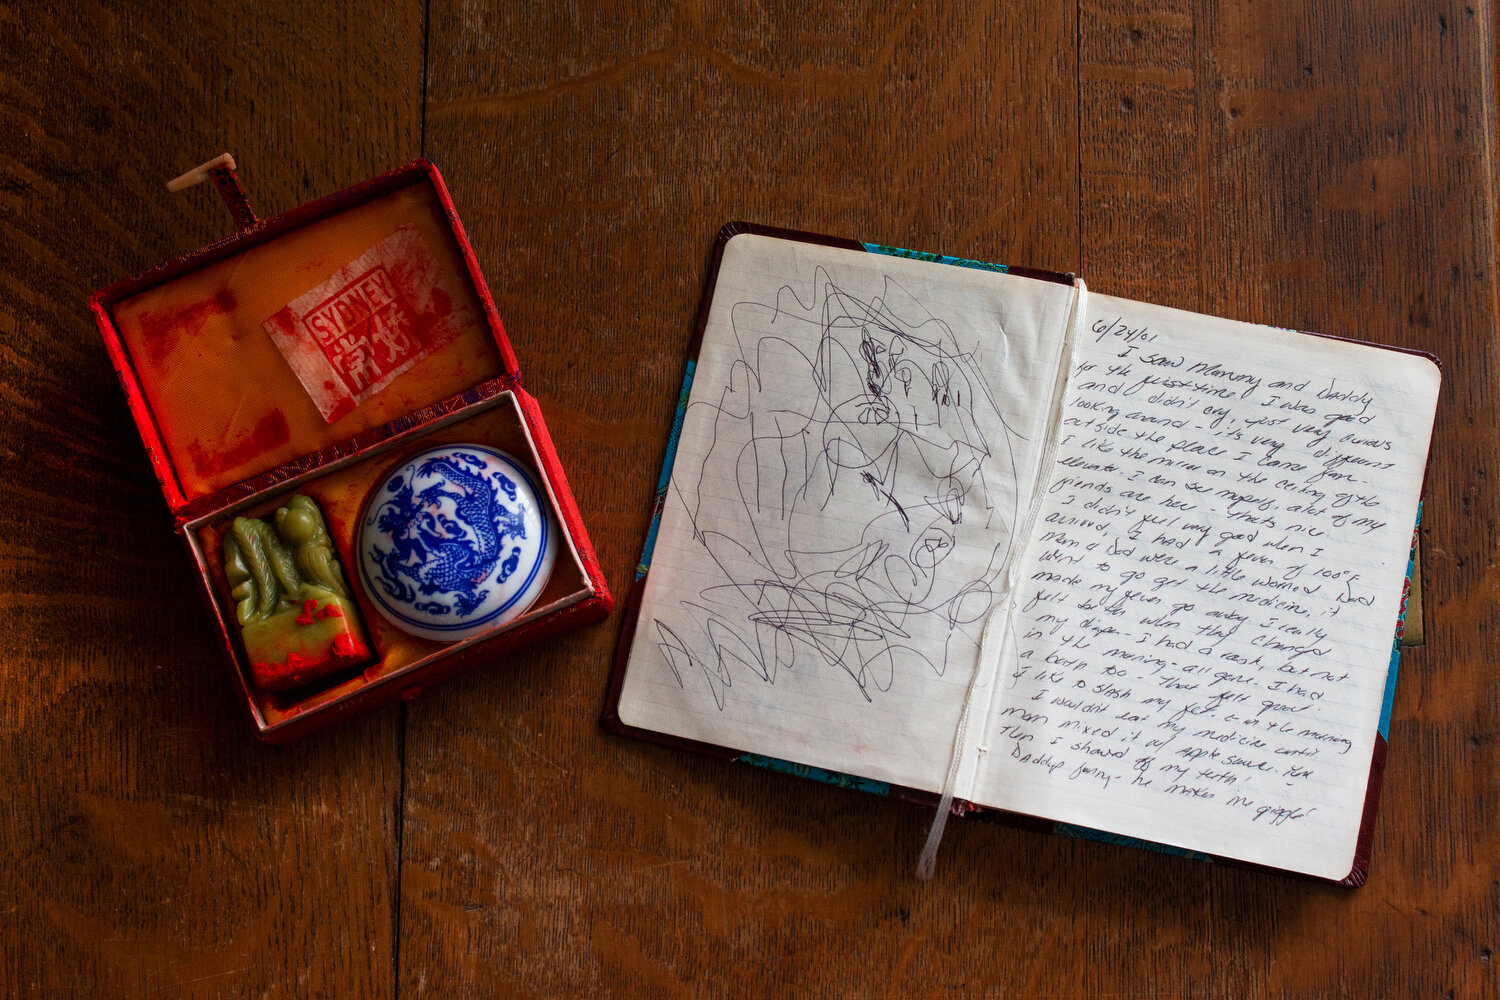 SYDNEY
6/24/01
I saw Mommy and Daddy
for the first time. I was good
and didn't cry, just very curious
looking around - it's very different
outside the place I came from.
I like the mirror on the ceiling of the
elevator - I can see myself, alot of my
friends are here - thats nice.
I didn't feel very good when I
arrived, I had a fever of 100°F
Mom & Dad were a little worried. Dad
went to go get the medicine, it
made my fever go away. I really
felt better when they changed
my diaper - I had a rash, but not
in the morning - all gone. I had
a bath too - that felt great.
I like to slash my feet in the morning
I wouldn't eat my medicine until
mom mixed it w/ apple sauce. Then
then I showed my teeth!
Daddys funny - he makes me giggle!